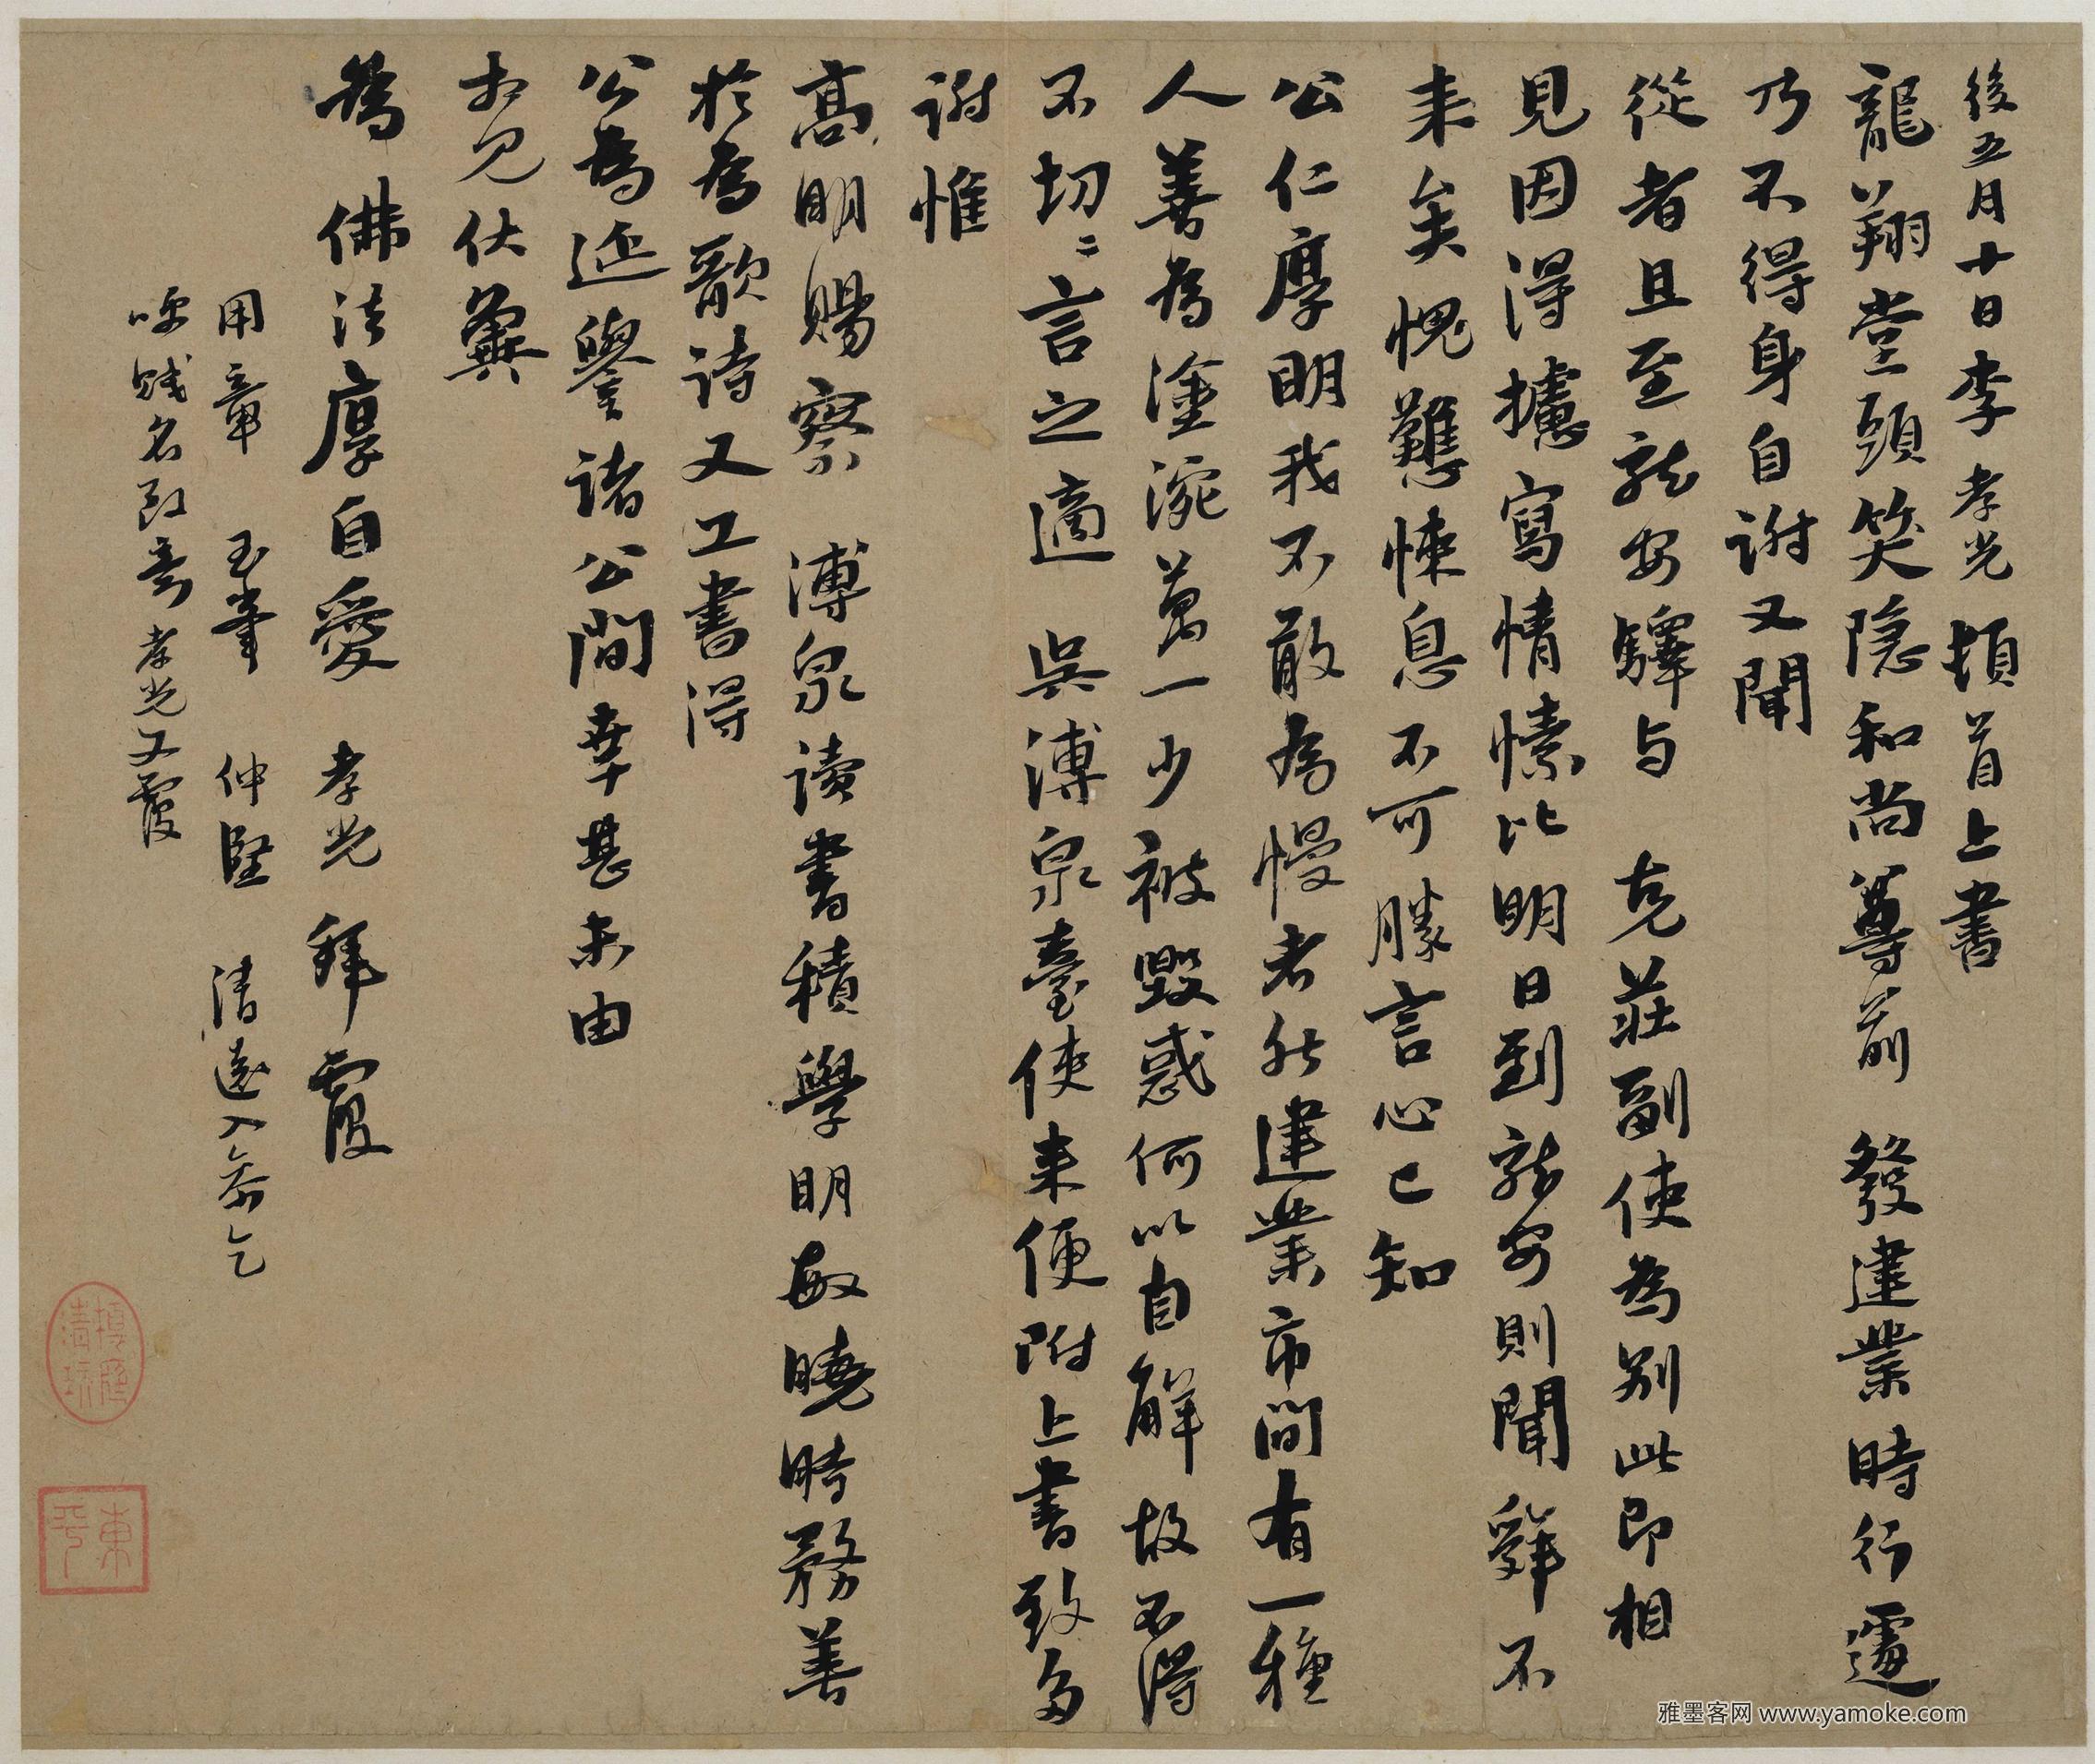 後五月十日李孝光頓首上書
龍翔堂頭笑隱和尚尊前 發建業時行遽
乃不得身自謝又聞
從者且至龍安驛与 克莊副使為別此即相
見因得攄寫情愫比明日到龍安則聞舜不
来矣愧難悚息不可勝言心已知
公仁厚明我不敢為慢者然建業市間有一種
人善為塗涴萬一少被毀惑何以自解故不得
不切〻言之適 吳溥泉臺使来便附上書致
謝惟
高明賜察 溥泉讀書積學明敏曉時務善
於為歌詩又工書得
公為延譽諸公間幸甚未由
相見伏冀
為 佛法厚自愛 孝光 拜覆
用章 玉峯 仲堅 清遠 乞
賤名致意 孝光又覆
東平
雅墨客网 www.yamoke.com